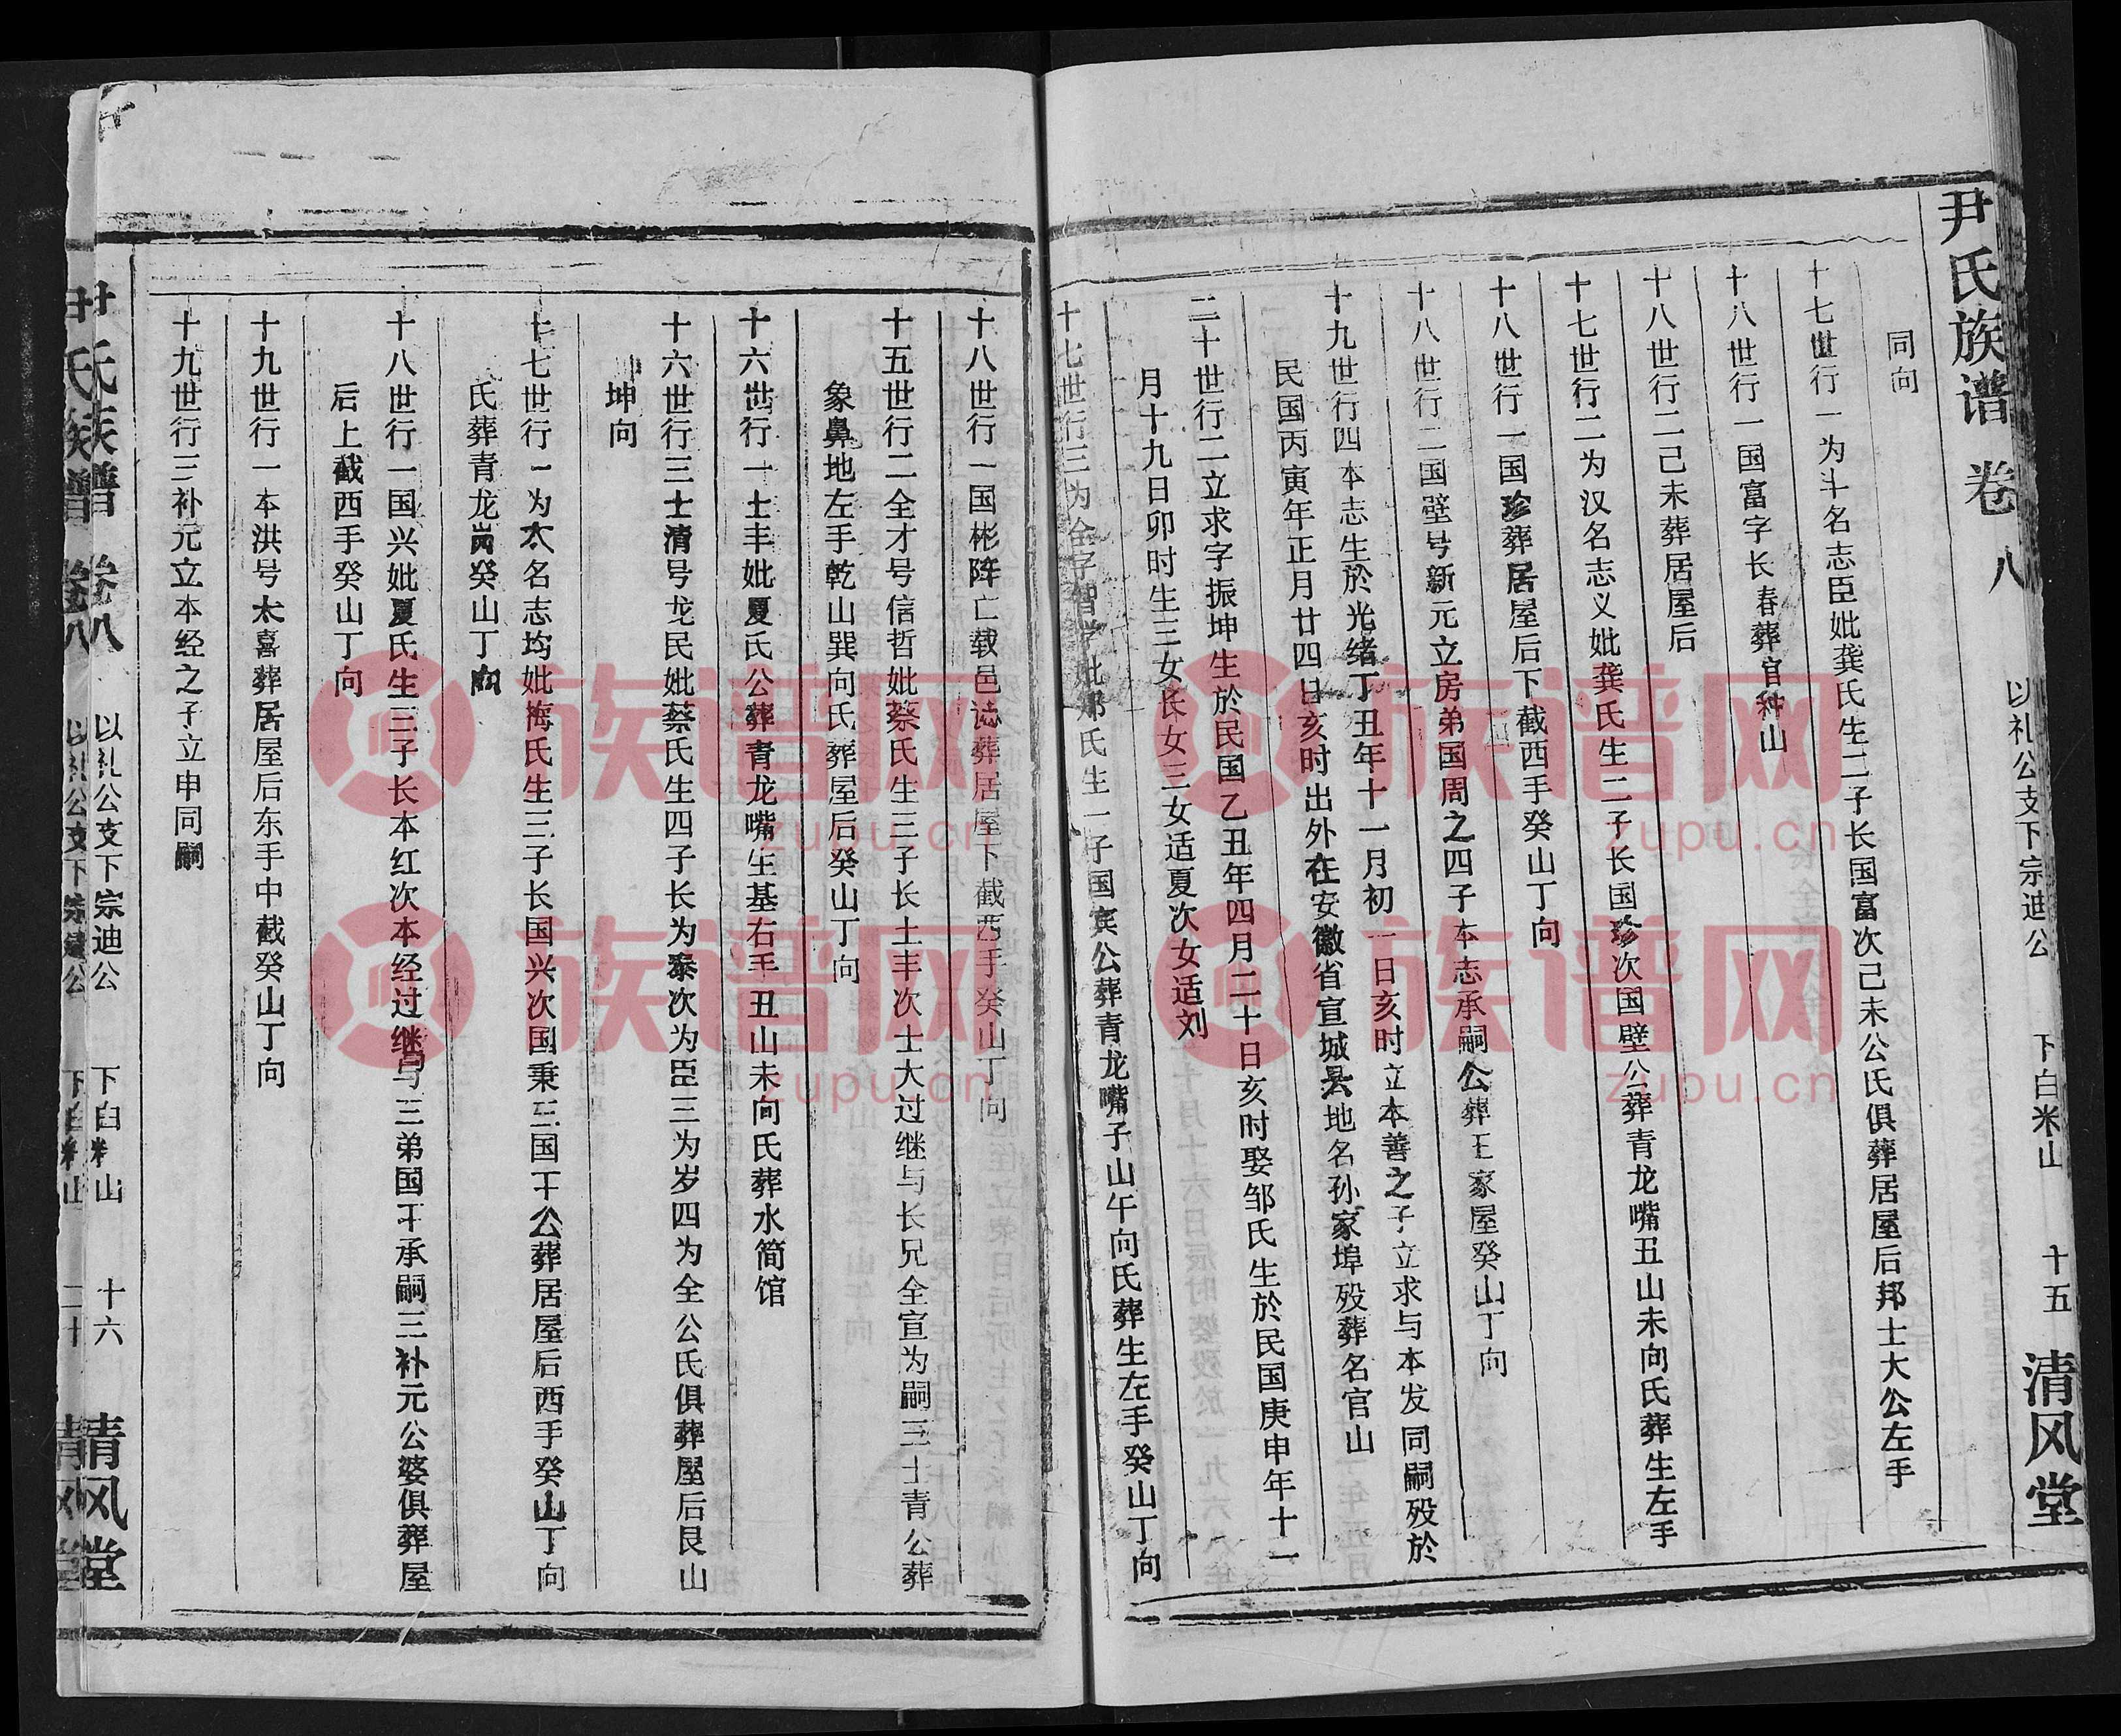 尹氏族谱 卷八 以礼公支下宗迪公 下白米山 十五 清风堂
同向
十七世行一为斗名志臣妣龚氏生二子长国富次己未公氏俱葬居屋后邦士大公左手
十八世行一国富字长春葬官种山
十八世行二己未葬居屋后
十七世行二为汉名志义妣龚氏生二子长国珍次国壁公葬青龙嘴丑山未向氏葬生左手
十八世行一国珍葬居屋后下截西手癸山丁向
十八世行二国壁号新元立房弟国周之四子本志承嗣公葬王家屋癸山丁向
十九世行四本志生於光绪丁丑年十一月初一日亥时立本善之子立求与本发同嗣殁於
民国丙寅年正月廿四日亥时出外在安徽省宣城县地名孙家埠殁葬名官山
二十世行二立求字振坤生於民国乙丑年四月二十日亥时娶邹氏生於民国庚申年十一
月十九日卯时生三女长女三女适夏次女适刘
十七世行三为全字智学妣郑氏生一子国宾公葬青龙嘴子山午向氏葬生左手癸山丁向
十八世行一国彬阵亡载邑志葬居屋下截西手癸山丁向
十五世行二全才号信哲妣蔡氏生三子长士丰次士大过继与长兄全宣为嗣三士青公葬
象鼻地左手乾山巽向氏葬屋后癸山丁向
十六世行一士丰妣夏氏公葬青龙嘴生基右手丑山未向氏葬水筒馆
十六世行三士清号龙民妣蔡氏生四子长为泰次为臣三为岁四为全公氏俱葬屋后艮山
坤向
十七世行一为太名志均妣梅氏生三子长国兴次国秉三国干公葬居屋后西手癸山丁向
氏葬青龙岗癸山丁向
十八世行一国兴妣夏氏生三子长本红次本经过继与三弟国干承嗣三补元公婆俱葬屋
后上截西手癸山丁向
十九世行一本洪号太喜葬居屋后东手中截癸山丁向
十九世行三补元立本经之子立申同嗣
尹氏族谱 卷八 以礼公支下宗迪公 下白米山 十六 清风堂